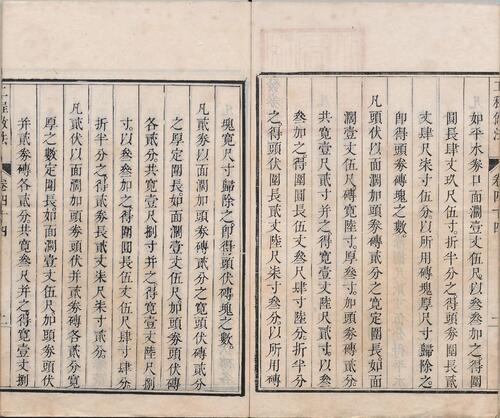 工程做法 卷四十四 一
如平水券口面濶壹丈伍尺以叁叁加之得圍
圓長肆丈玖尺伍寸折半分之得頭券圍長貳
丈肆尺柒寸伍分以所用磚塊厚尺寸歸除之
即得頭券磚塊之數
凡頭伏以面濶加頭券磚貳分之寬定圍長如面
濶壹丈伍尺磚寬陸寸厚叁寸加頭券磚貳分
共寬壹尺貳寸并之得寬壹丈陸尺貳寸以
叁叁加之得圍圓長伍丈叁尺肆寸陸分折半分
之得頭伏圍長貳丈陸尺柒寸叁分以所用磚
塊寬尺寸歸除之即得頭伏磚塊之數
凡貳券以面濶加頭券磚貳分之寬頭伏磚貳分
之厚定圍長如面濶壹丈伍尺加頭券頭伏磚
各貳分共寬壹尺捌寸并之得寬壹丈陸尺捌
寸以叁叁加之得圍圓長伍丈伍尺肆寸肆分
折半分之得貳券長貳丈柒尺柒寸貳分
凡貳伏以面濶加頭券貳券磚各貳分之寬
之厚定圍長如面濶壹丈伍尺加頭券頭伏
并貳券磚各貳分共寬叁尺并之得寬壹丈捌
工程做法 卷四十四 二